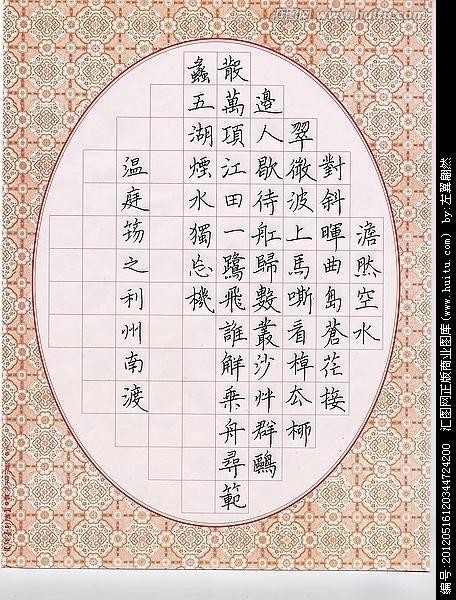 澹然空水
對斜暉曲島蒼茫接
翠微波上馬嘶看棹去柳
邊人歇待舡歸數叢沙艸群鷗
散萬項江田一鷺飛誰解乗舟尋範
蠡五湖煙水獨忘機
温庭筠之利州南渡
汇图网 www.huitu.com
编号:20120516120344724200 汇图网正版商业图库 (www.huitu.com) by:左翼翩然